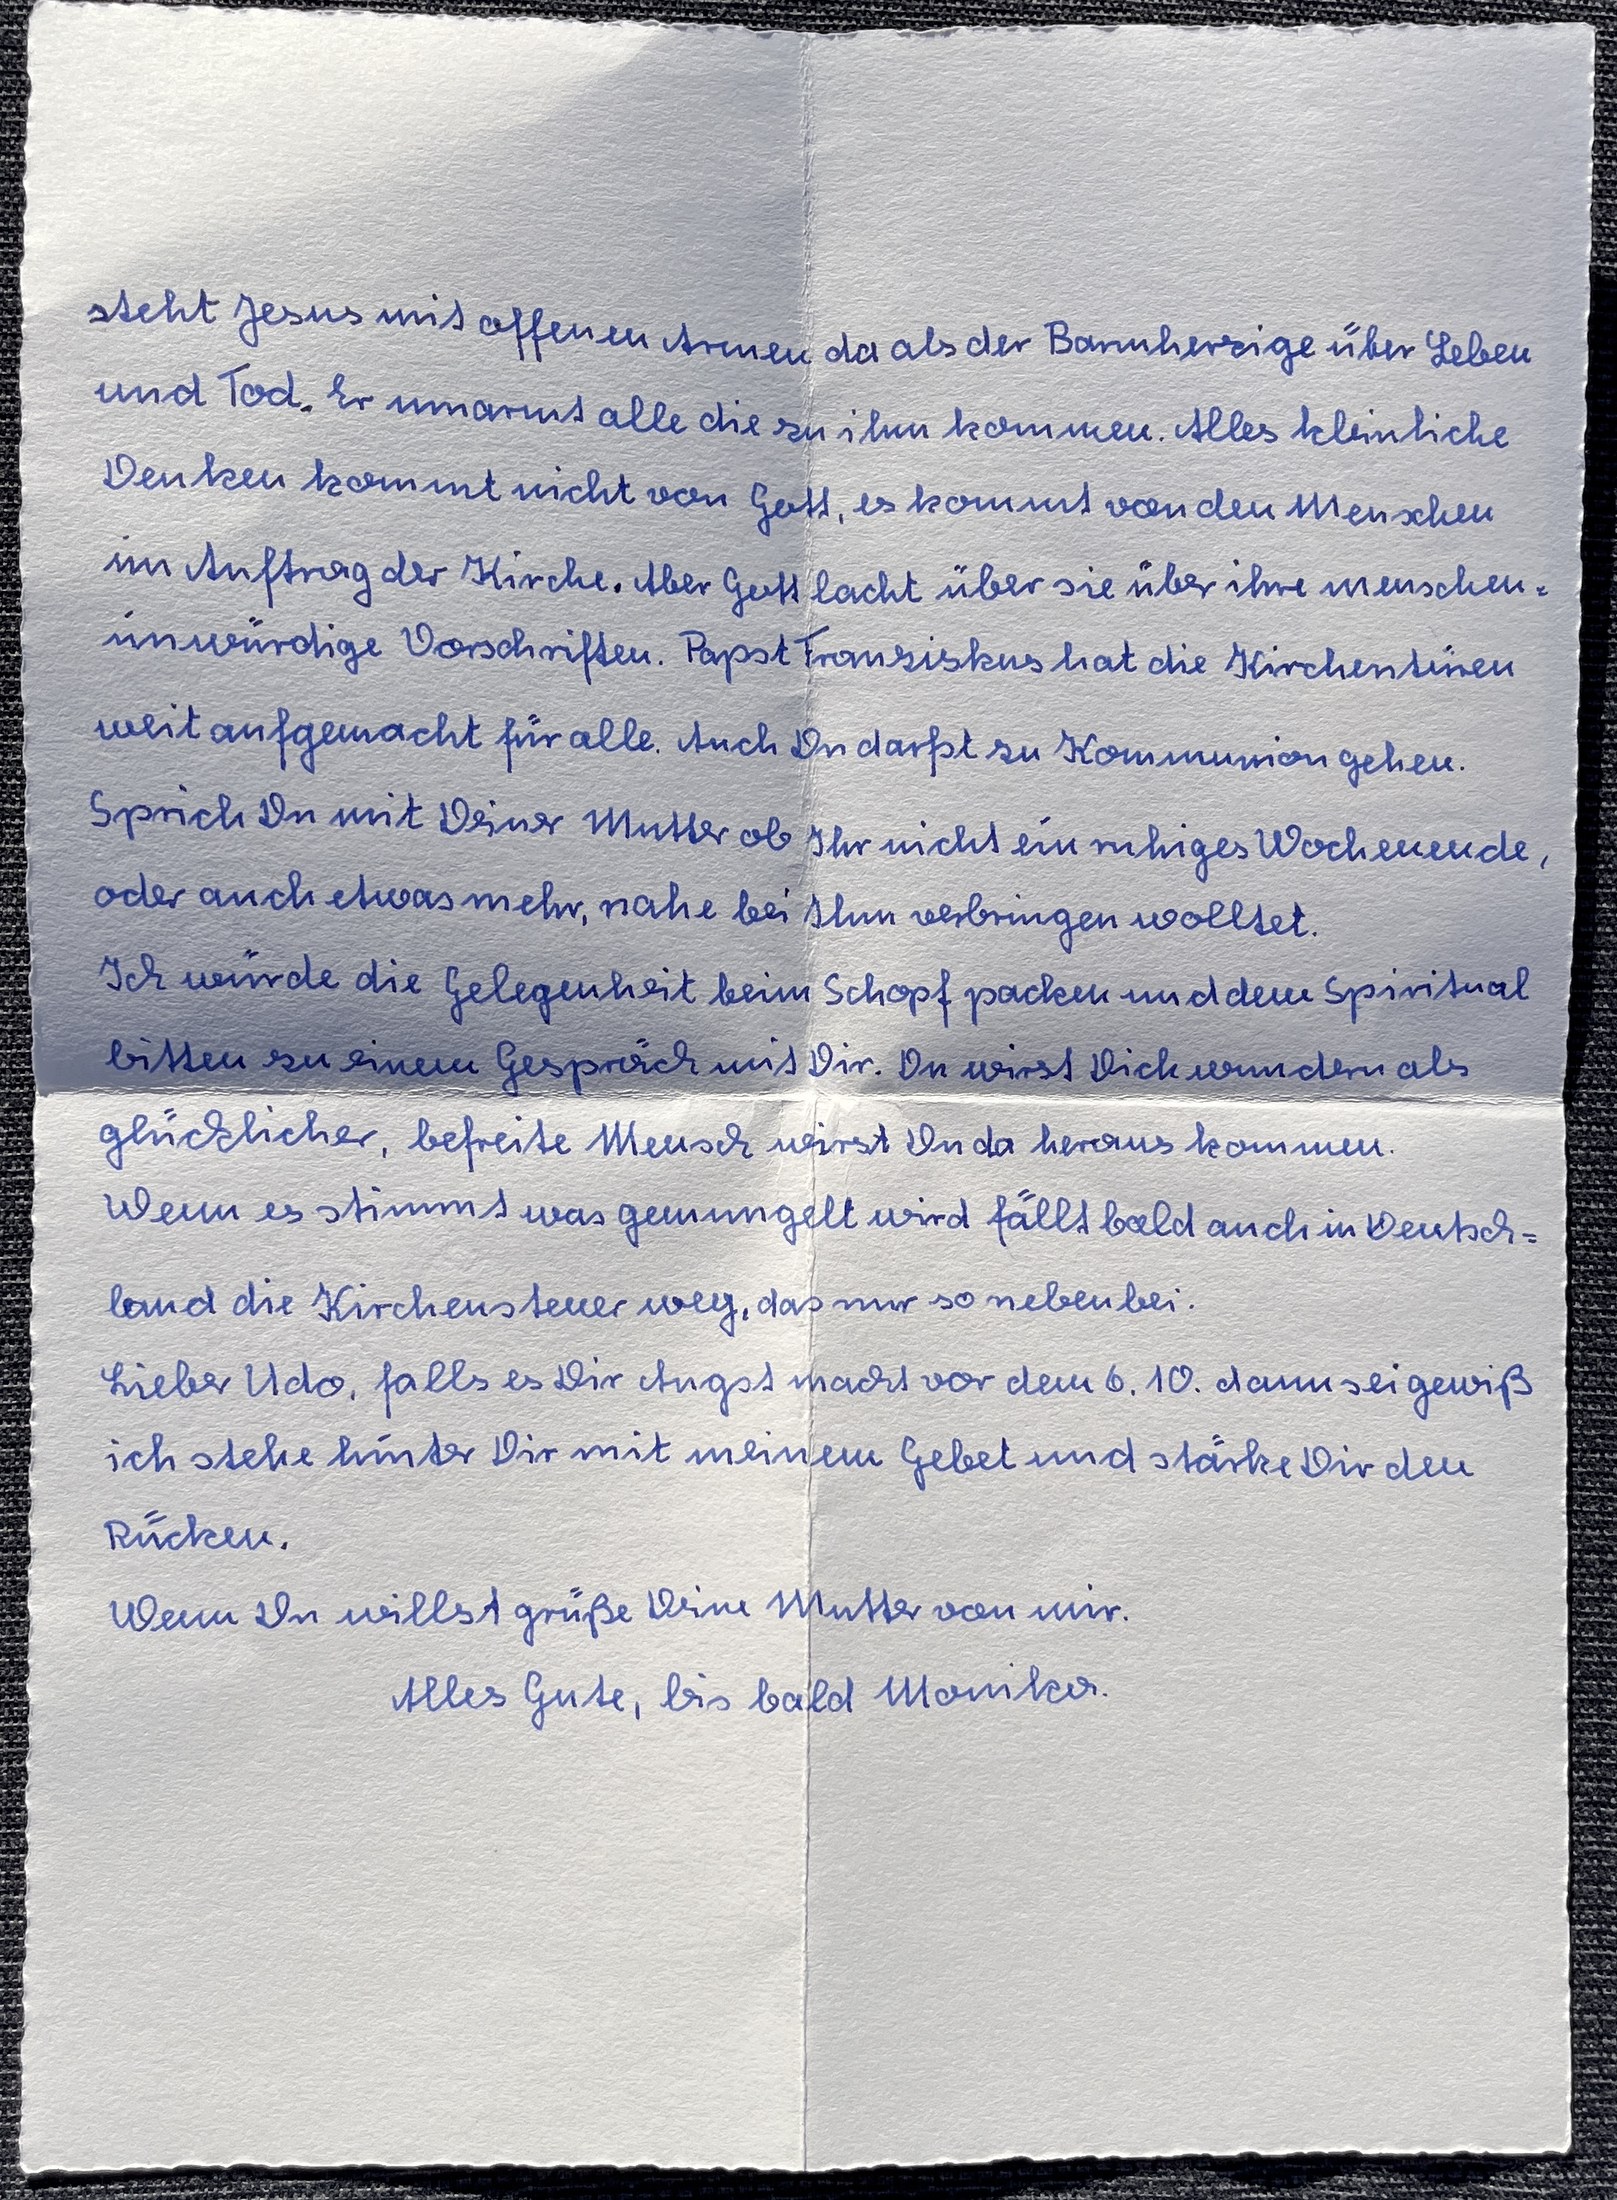 steht Jesus mit offenen Armen da als der Barmherzige über Leben
und Tod. Er umarmt alle die zu ihm kommen. Alles kleinliche
Denken kommt nicht von Gott, es kommt von den Menschen
im Auftrag der Kirche. Aber Gott lacht über sie über ihre menschen=
unwürdige Vorschriften. Papst Franziskus hat die Kirchentüren
weit aufgemacht für alle. Auch Du darfst zu Kommunion gehen.
Sprich Du mit Deiner Mutter ob Ihr nicht ein ruhiges Wochenende,
oder auch etwas mehr, nahe bei Ihm verbringen wolltet.
Ich würde die Gelegenheit beim Schopf packen und dem Spiritual
bitten zu einem Gespräch mit Dir. Du wirst Dich wundern als
glücklicher, befreite Mensch wirst Du da heraus kommen.
Wenn es stimmt was gemungelt wird fällt bald auch in Deutsch=
land die Kirchensteuer weg, das nur so nebenbei.
Lieber Udo, falls es Dir Angst macht vor dem 6. 10. dann sei gewiß
ich stehe hinter Dir mit meinem Gebet und stärke Dir den
Rücken.
Wenn Du willst grüße Deine Mutter von mir.
Alles Gute, bis bald Monika.